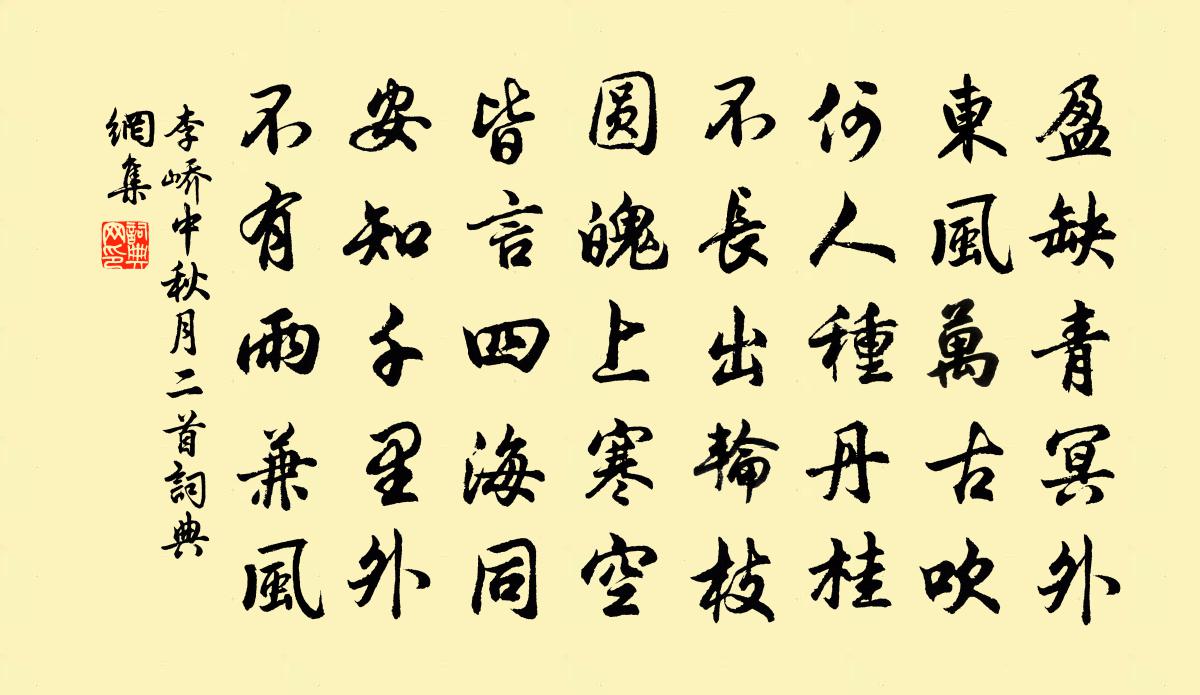 盈缺青冥外
東風萬古吹
何人種丹桂
不長出輪枝
圓魄上寒空
皆言四海同
安知千里外
不有雨兼風
李嶠中秋月二首詞典
網集
詞典
网印